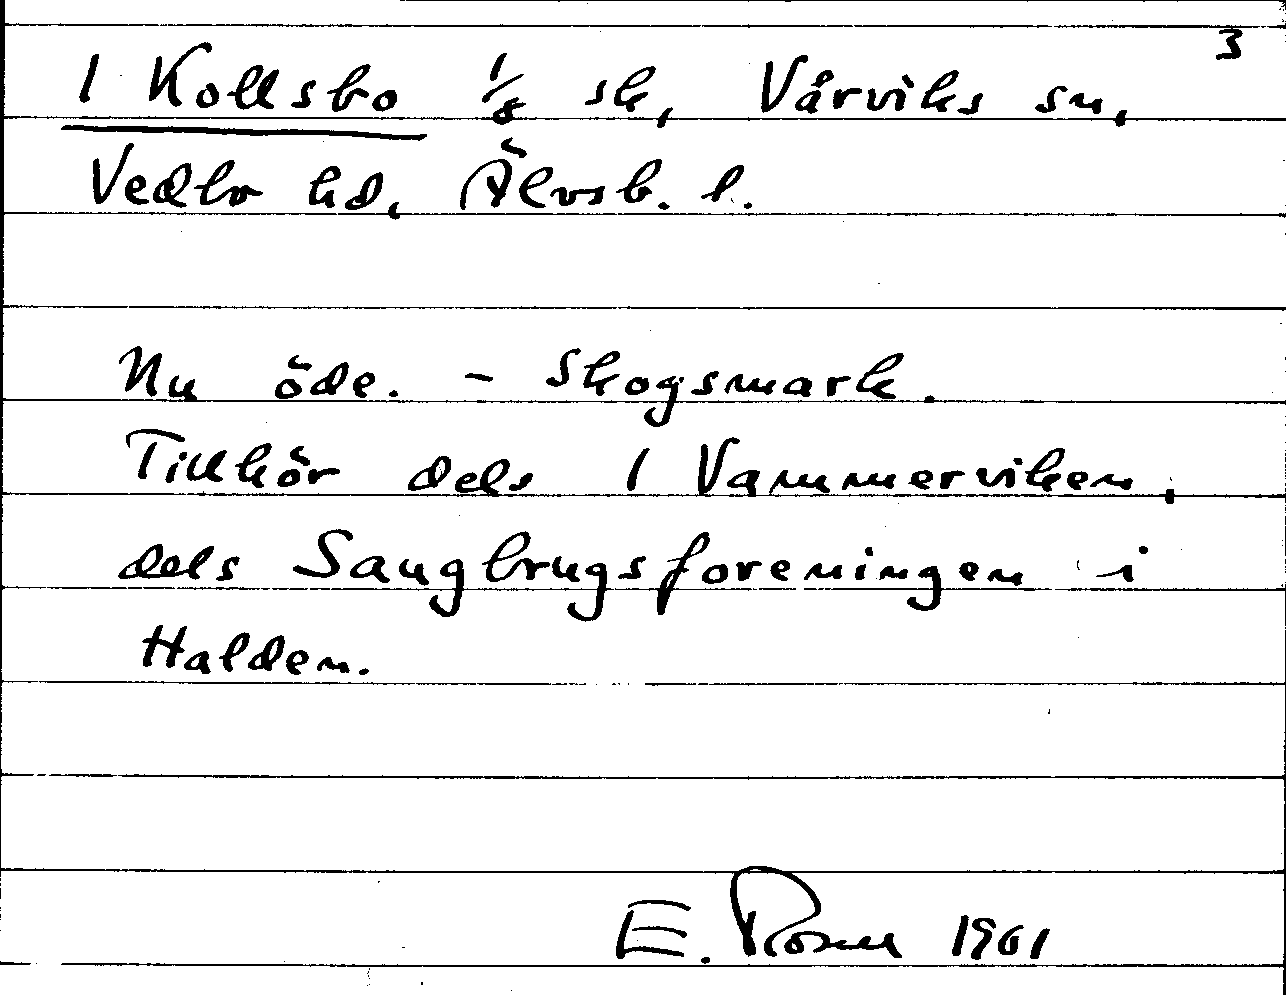 3
1 Kollsbo 1/8 sk, Vårviks sn,
Vedbo hd, Älvsb. l.
Nu öde. - Skogsmark.
Tillhör dels 1 Vammerviken,
dels Saugbrugsforeningen i
Halden.
E. 1961